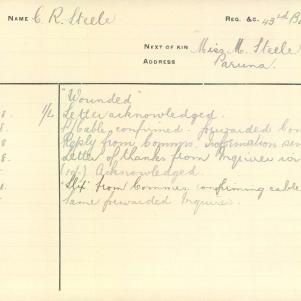 NAME C. R. Steele
REG. &C. 43rd B
NEXT OF KIN Miss M. Steele
ADDRESS Paruna.
"Wounded"
8. 1/L Letter acknowledged.
8. P/Cable confirmed. forwarded Com
8. Reply from Commrs. Information sen
8. Letter of thanks from Inquirer
Acknowledged.
from Commrs. confirming cable
Same forwarded Inquirer.